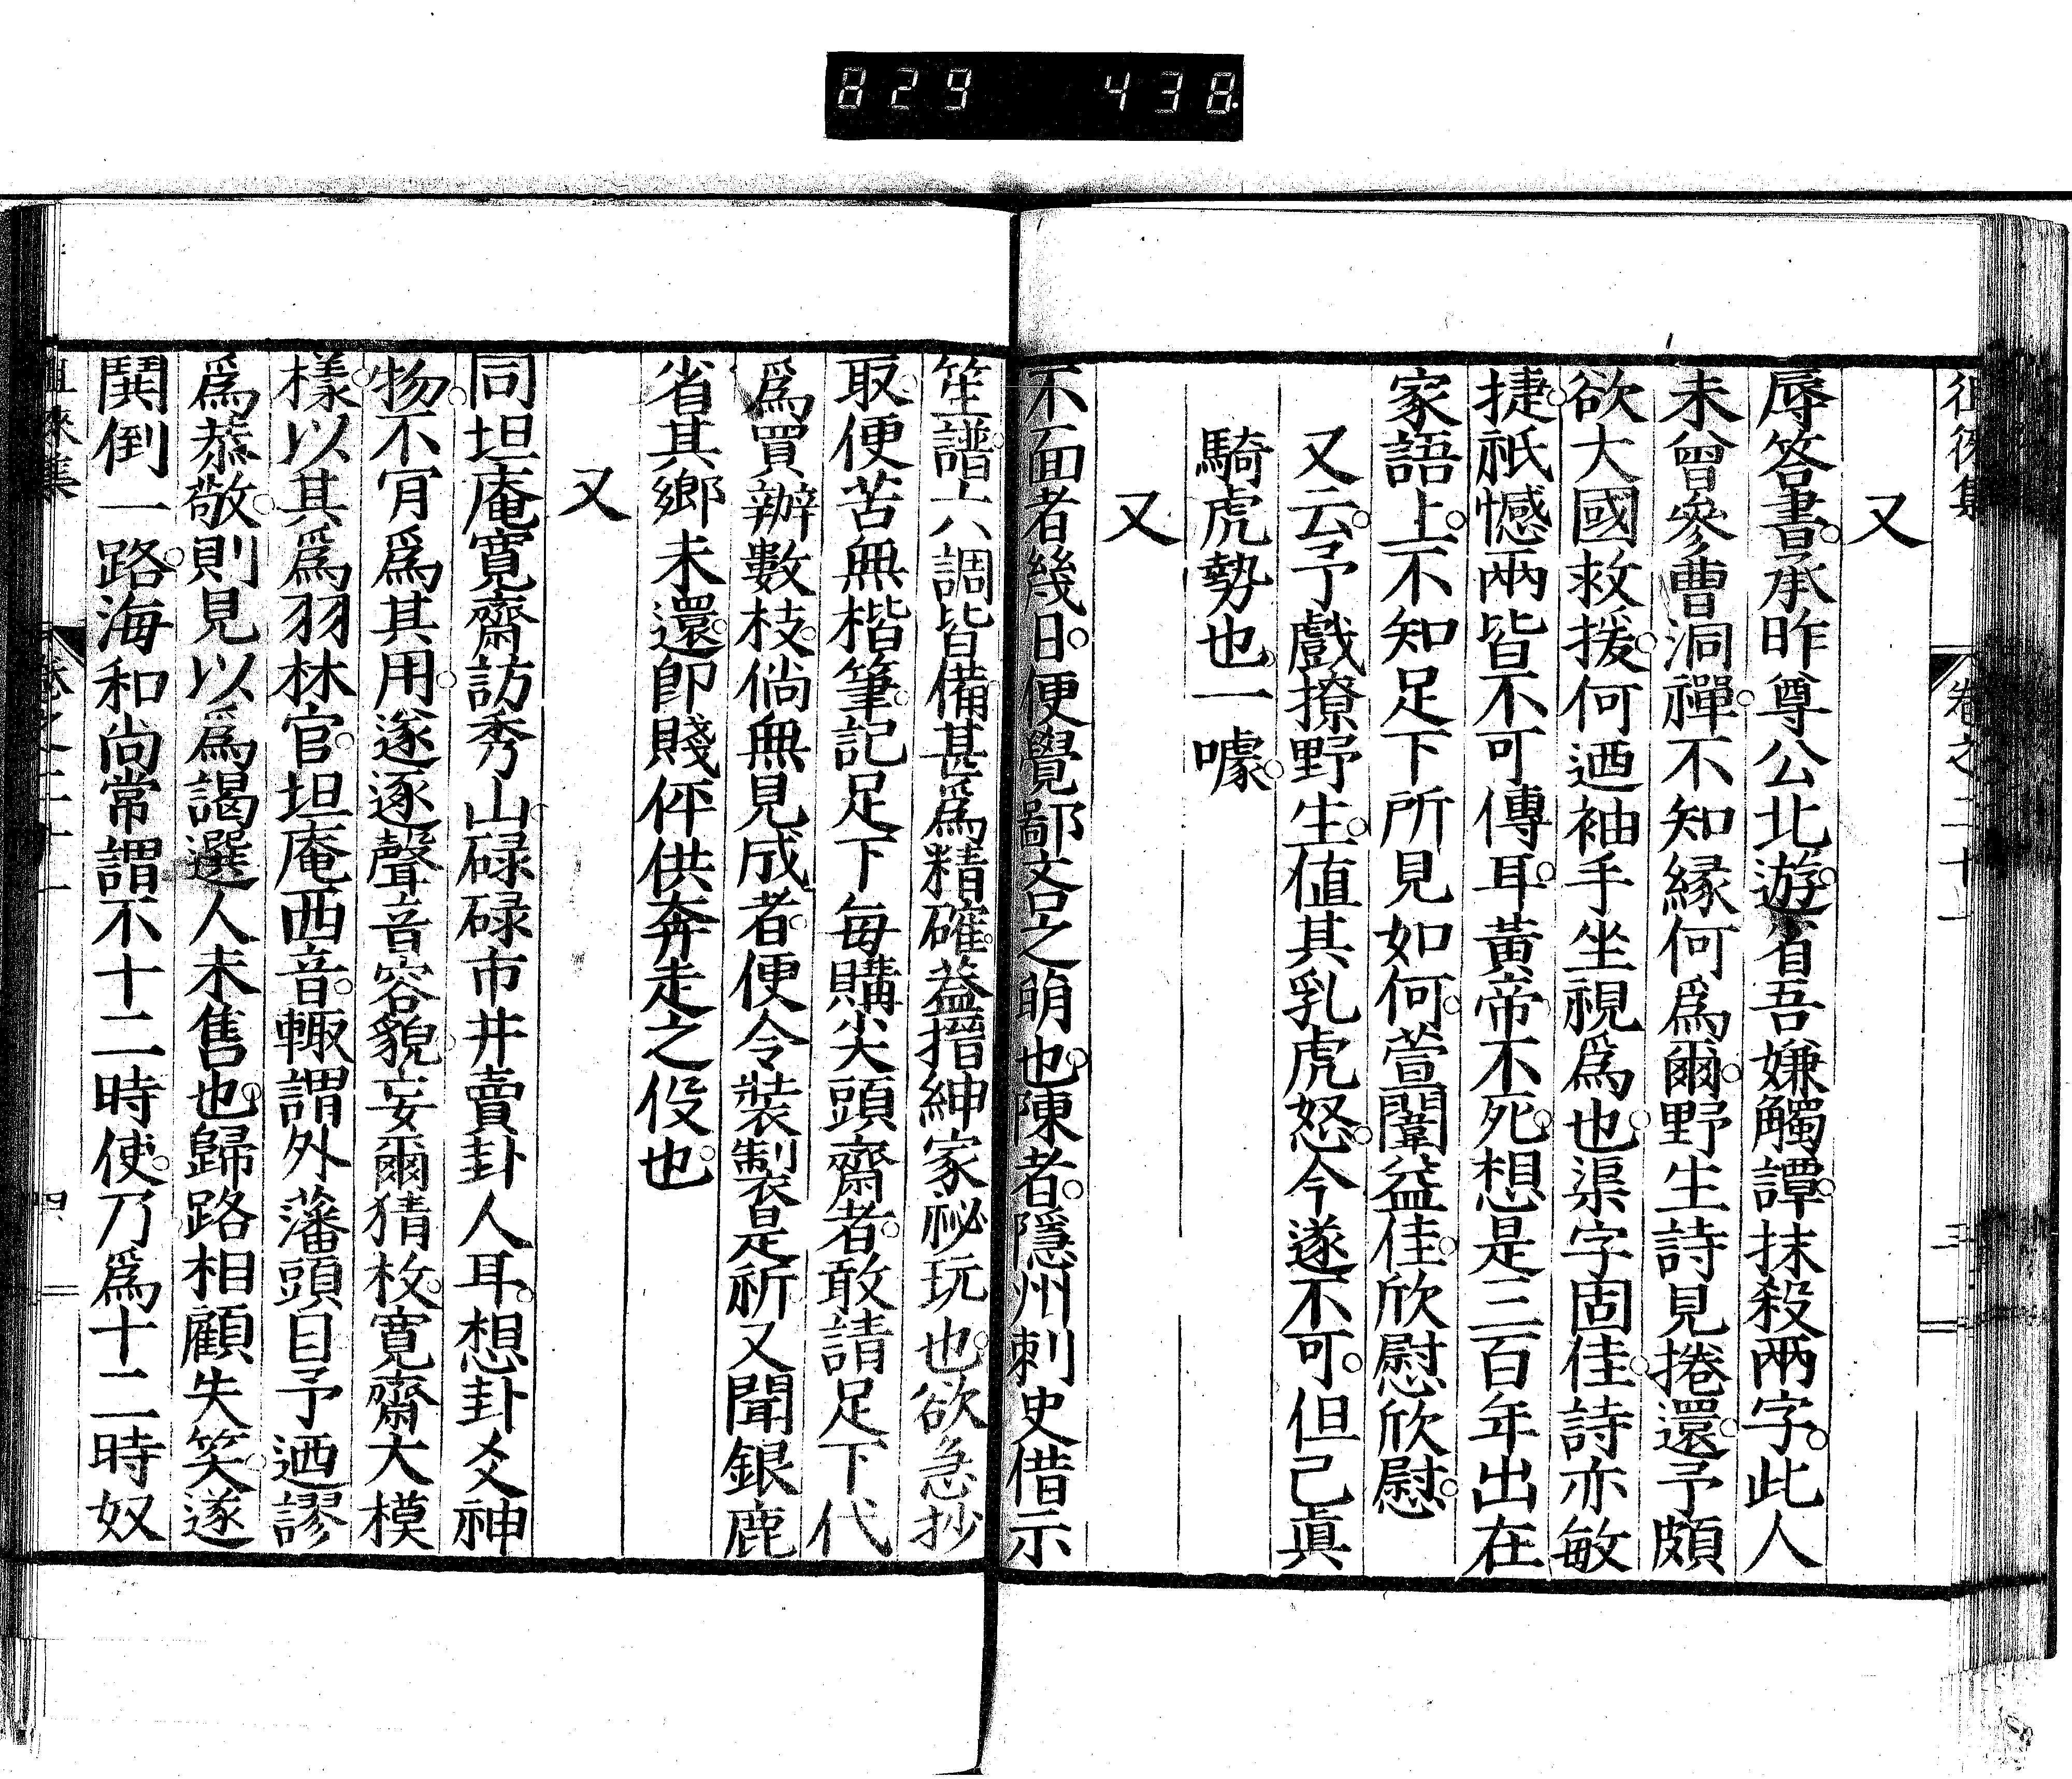 829 438
徂徠集 卷之二十一 三
又
辱答書。承昨尊公北遊。省吾嫌觸譚。抹殺兩字。此人
未曾參曹洞禪。不知縁何爲爾。野生詩見捲還。予頗
欲大國救援。何迺袖手坐視爲也。渠字固佳。詩亦敏
捷。祇憾兩皆不可傳耳。黃帝不死。想是三百年出在
家語上。不知足下所見如何。萱闈益佳。欣慰欣慰。
又云。予戲撩野生。値其乳虎怒。今遂不可。但已眞
騎虎勢也。一噱。
又
不面者幾日。便覺鄙吝之萌也。陳者。隱州刺史借示
笙譜。六調皆備。甚爲精確。葢搢紳家祕玩也。欲急抄
取。便苦無楷筆。記足下每購尖頭齋者。敢請足下代
爲買辦數枝。倘無見成者。便令裝製是祈。又聞銀鹿
省其鄉未還。卽賤伻供奔走之役也。
又
同坦庵寬齋訪秀山。碌碌市井賣卦人耳。想卦爻神
物。不肯爲其用。遂逐聲音容貌。妄爾猜枚。寬齋大模
樣。以其爲羽林官。坦庵西音。輙謂外藩頭目。予迺謬
爲恭敬。則見以爲謁選人未售也。歸路相顧失笑。遂
鬨倒一路。海和尚常謂不十二時使。乃爲十二時奴
徂徠集 卷之二十一 四